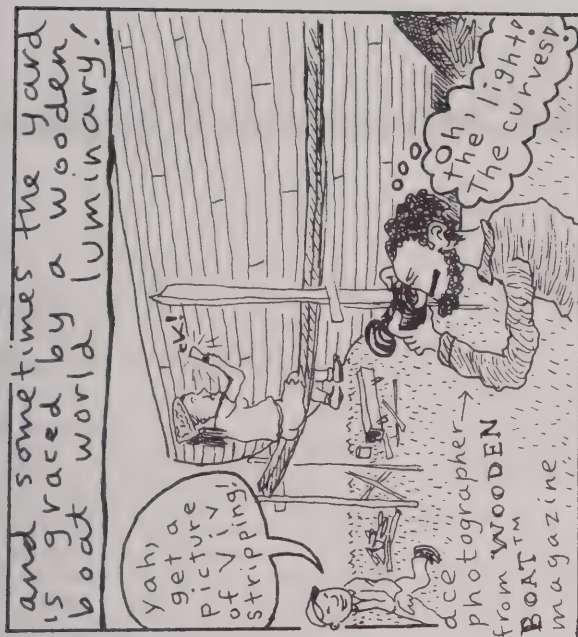 and sometimes the yard
is graced by a wooden
boat world luminary!
yah,
get a
picture
of Viv
stripping!
ek!
Oh,
the light!
The curves!
ace
photographer→
from WOODEN
BOAT™
magazine